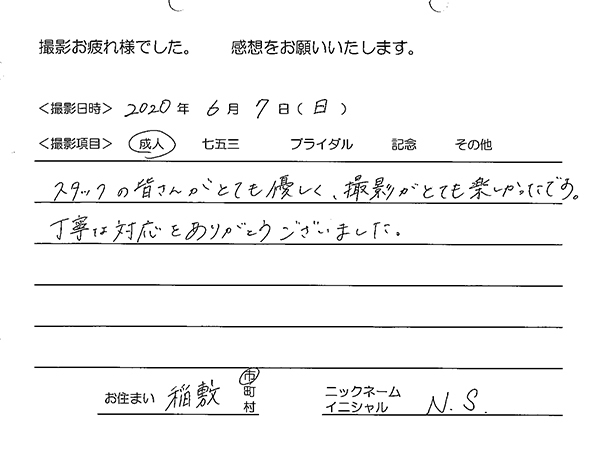 撮影お疲れ様でした。 感想をお願いいたします。
＜撮影日時＞ 2020 年 6 月 7 日 ( 日 )
＜撮影項目＞ 成人 七五三 ブライダル 記念 その他
スタッフの皆さんがとても優しく、撮影がとても楽しかったです。
丁寧な対応をありがとうございました。
お住まい 稲敷 市 町 村 ニックネーム イニシャル N.S.